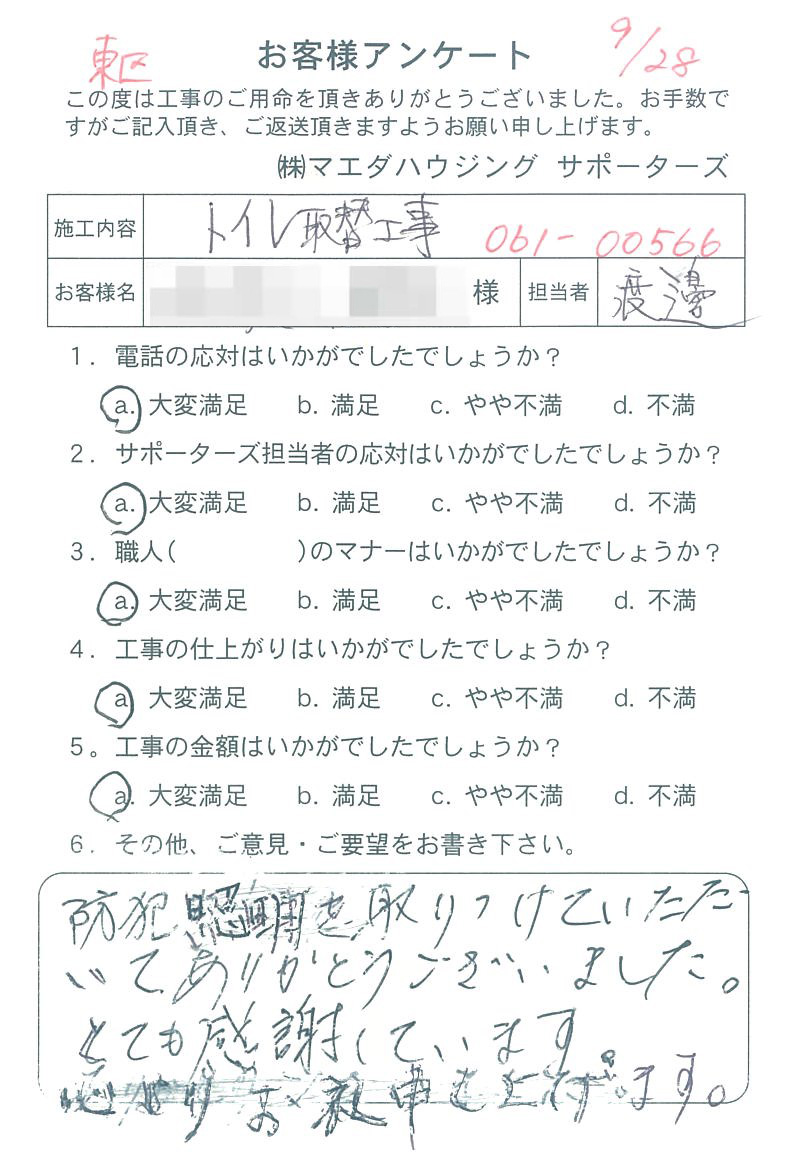 東区
お客様アンケート
9/28
この度は工事のご用命を頂きありがとうございました。お手数で
すがご記入頂き、ご返送頂きますようお願い申し上げます。
㈱マエダハウジング サポーターズ
施工内容 トイレ取替工事 061-00566
お客様名 様 担当者 渡邊
1. 電話の応対はいかがでしたでしょうか？
a. 大変満足 b. 満足 c. やや不満 d. 不満
2. サポーターズ担当者の応対はいかがでしたでしょうか？
a. 大変満足 b. 満足 c. やや不満 d. 不満
3. 職人( )のマナーはいかがでしたでしょうか？
a. 大変満足 b. 満足 c. やや不満 d. 不満
4. 工事の仕上がりはいかがでしたでしょうか？
a 大変満足 b. 満足 c. やや不満 d. 不満
5。工事の金額はいかがでしたでしょうか？
a. 大変満足 b. 満足 c. やや不満 d. 不満
6. その他、ご意見・ご要望をお書き下さい。
防犯 を取りつけていただ
いてありがとうございました。
とても感謝しています
お礼申し上げます。